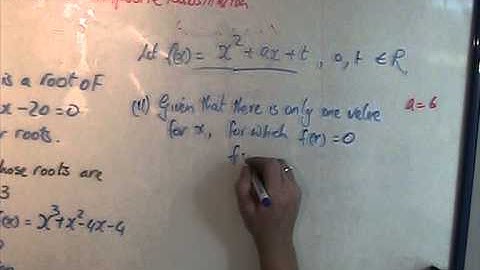 Let f(x) = x² + ax + t , a, t ∈ R
is a root of
x - 20 = 0
r roots.
(ii) Given that there is only one value
for x, for which f(x) = 0
a = 6
hose roots are
3
(x) = x³ + x² - 4x - 4